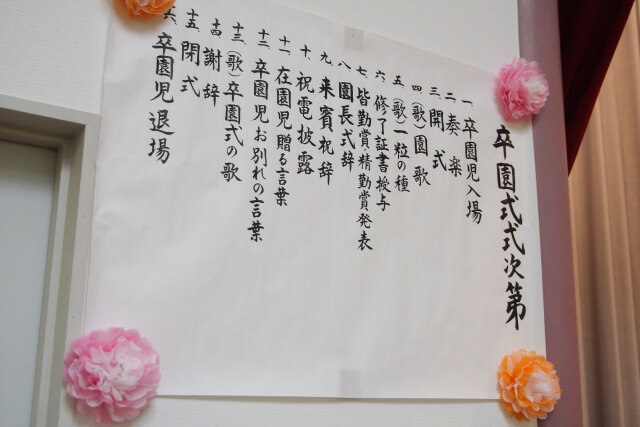 卒園式式次第
一、卒園児入場
二、奏楽
三、開式
四、(歌)園歌
五、(歌)一粒の種
六、修了証書授与
七、皆勤賞・精勤賞発表
八、園長式辞
九、来賓祝辞
十、祝電披露
十一、在園児贈る言葉
十二、卒園児お別れの言葉
十三、(歌)卒園式の歌
十四、謝辞
十五、閉式
六、卒園児退場